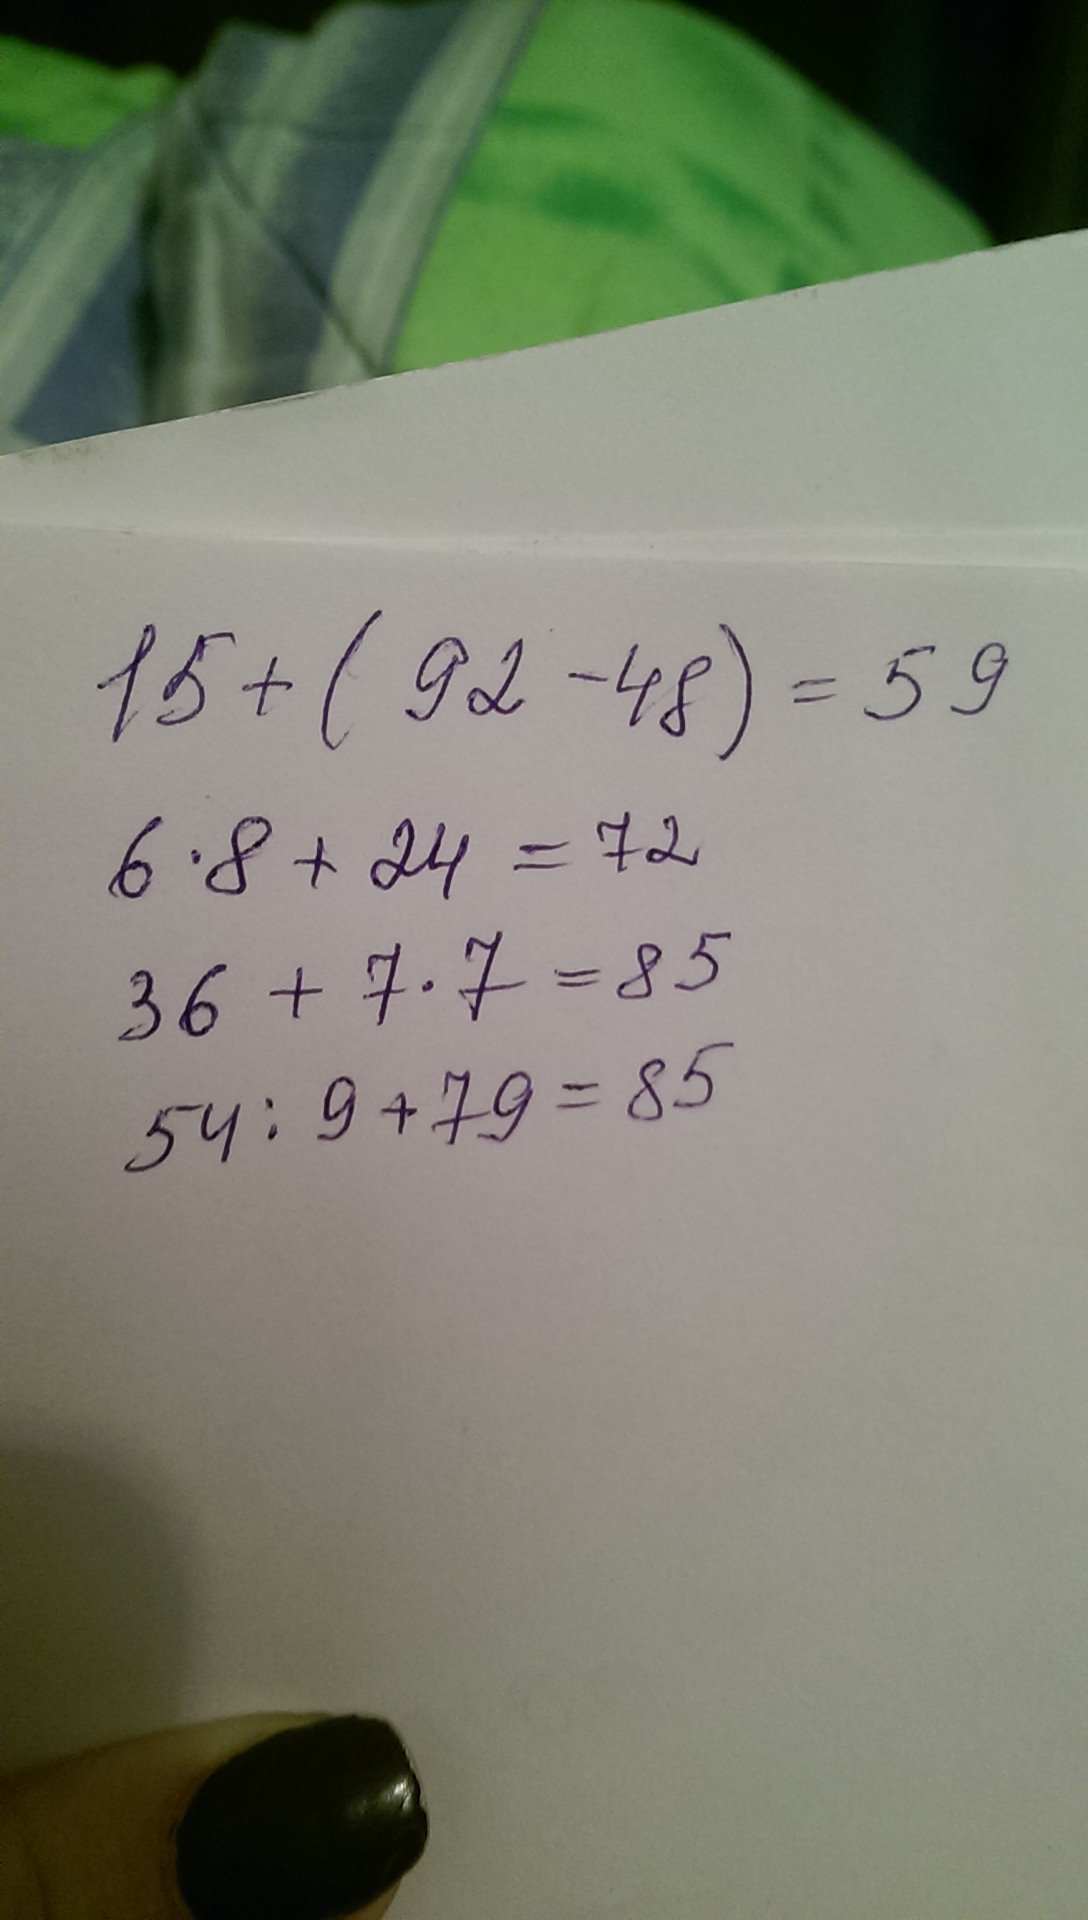 15 + (92 - 48) = 59
6 · 8 + 24 = 72
36 + 7 · 7 = 85
54 : 9 + 79 = 85